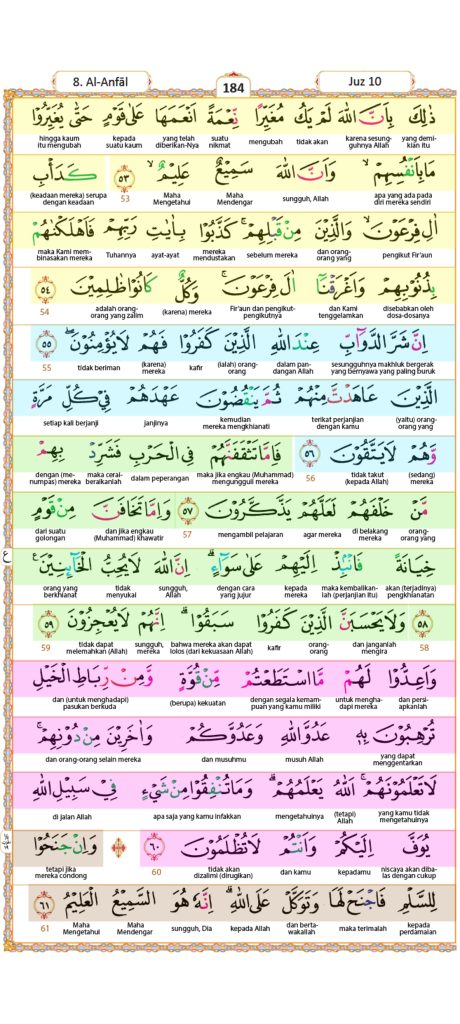 8. Al-Anfāl
184
Juz 10
ذٰلِكَ بِاَنَّ اللّٰهَ لَمْ يَكُ مُغَيِّرًا نِّعْمَةً اَنْعَمَهَا عَلٰى قَوْمٍ حَتّٰى يُغَيِّرُوْا
yang demikian itu karena sesungguhnya Allah tidak akan mengubah suatu nikmat yang telah diberikan-Nya kepada suatu kaum hingga kaum itu mengubah
مَا بِاَنْفُسِهِمْۙ وَاَنَّ اللّٰهَ سَمِيْعٌ عَلِيْمٌۙ ٥٣ كَدَأْبِ
apa yang ada pada diri mereka sendiri sungguh, Allah Maha Mendengar Maha Mengetahui 53 (keadaan mereka) serupa dengan keadaan
اٰلِ فِرْعَوْنَۙ وَالَّذِيْنَ مِنْ قَبْلِهِمْۚ كَذَّبُوْا بِاٰيٰتِ رَبِّهِمْ فَاَهْلَكْنٰهُمْ
pengikut Fir'aun dan orang-orang yang sebelum mereka mereka mendustakan ayat-ayat Tuhannya maka Kami membinasakan mereka
بِذُنُوْبِهِمْ وَاَغْرَقْنَآ اٰلَ فِرْعَوْنَۚ وَكُلٌّ كَانُوْا ظٰلِمِيْنَ ٥٤
disebabkan oleh dosa-dosanya dan Kami tenggelamkan Fir'aun dan pengikut-pengikutnya (karena) mereka adalah orang-orang yang zalim 54
اِنَّ شَرَّ الدَّوَاۤبِّ عِنْدَ اللّٰهِ الَّذِيْنَ كَفَرُوْا فَهُمْ لَا يُؤْمِنُوْنَۖ ٥٥
sesungguhnya makhluk bergerak yang bernyawa yang paling buruk dalam pandangan Allah (ialah) orang-orang kafir (karena) mereka tidak beriman 55
الَّذِيْنَ عَاهَدْتَّ مِنْهُمْ ثُمَّ يَنْقُضُوْنَ عَهْدَهُمْ فِيْ كُلِّ مَرَّةٍ
(yaitu) orang-orang yang terikat perjanjian dengan kamu kemudian mereka mengkhianati janjinya setiap kali berjanji
وَّهُمْ لَا يَتَّقُوْنَ ٥٦ فَاِمَّا تَثْقَفَنَّهُمْ فِى الْحَرْبِ فَشَرِّدْ بِهِمْ
(sedang) mereka tidak takut (kepada Allah) 56 maka jika engkau (Muhammad) mengungguli mereka dalam peperangan maka cerai-beraikanlah dengan (menumpas) mereka
مَّنْ خَلْفَهُمْ لَعَلَّهُمْ يَذَّكَّرُوْنَ ٥٧ وَاِمَّا تَخَافَنَّ مِنْ قَوْمٍ
orang-orang yang di belakang mereka agar mereka mengambil pelajaran 57 dan jika engkau (Muhammad) khawatir dari suatu golongan
خِيَانَةً فَانْۢبِذْ اِلَيْهِمْ عَلٰى سَوَاۤءٍۗ اِنَّ اللّٰهَ لَا يُحِبُّ الْخَاۤىِٕنِيْنَ ࣖ
akan (terjadinya) pengkhianatan maka kembalikanlah (perjanjian itu) kepada mereka dengan cara yang jujur sungguh, Allah tidak menyukai orang yang berkhianat
ع
٥٨ وَلَا يَحْسَبَنَّ الَّذِيْنَ كَفَرُوْا سَبَقُوْاۗ اِنَّهُمْ لَا يُعْجِزُوْنَ ٥٩
58 dan janganlah mengira orang-orang kafir bahwa mereka akan dapat lolos (dari kekuasaan Allah) sungguh, mereka tidak dapat melemahkan (Allah) 59
وَاَعِدُّوْا لَهُمْ مَّا اسْتَطَعْتُمْ مِّنْ قُوَّةٍ وَّمِنْ رِّبَاطِ الْخَيْلِ
dan persiapkanlah untuk menghadapi mereka dengan segala kemampuan yang kamu miliki (berupa) kekuatan dan (untuk menghadapi) pasukan berkuda
تُرْهِبُوْنَ بِهٖ عَدُوَّ اللّٰهِ وَعَدُوَّكُمْ وَاٰخَرِيْنَ مِنْ دُوْنِهِمْۚ
yang dapat menggentarkan musuh Allah dan musuhmu dan orang-orang selain mereka
لَا تَعْلَمُوْنَهُمْۚ اَللّٰهُ يَعْلَمُهُمْۗ وَمَا تُنْفِقُوْا مِنْ شَيْءٍ فِيْ سَبِيْلِ اللّٰهِ
yang kamu tidak mengetahuinya (tetapi) Allah mengetahuinya apa saja yang kamu infakkan di jalan Allah
يُوَفَّ اِلَيْكُمْ وَاَنْتُمْ لَا تُظْلَمُوْنَ ٦٠ وَاِنْ جَنَحُوْا
niscaya akan dibalas dengan cukup kepadamu dan kamu tidak akan dizalimi (dirugikan) 60 tetapi jika mereka condong
لِلسَّلْمِ فَاجْنَحْ لَهَا وَتَوَكَّلْ عَلَى اللّٰهِۗ اِنَّهٗ هُوَ السَّمِيْعُ الْعَلِيْمُ ٦١
kepada perdamaian maka terimalah dan bertawakallah kepada Allah sungguh, Dia Maha Mendengar Maha Mengetahui 61